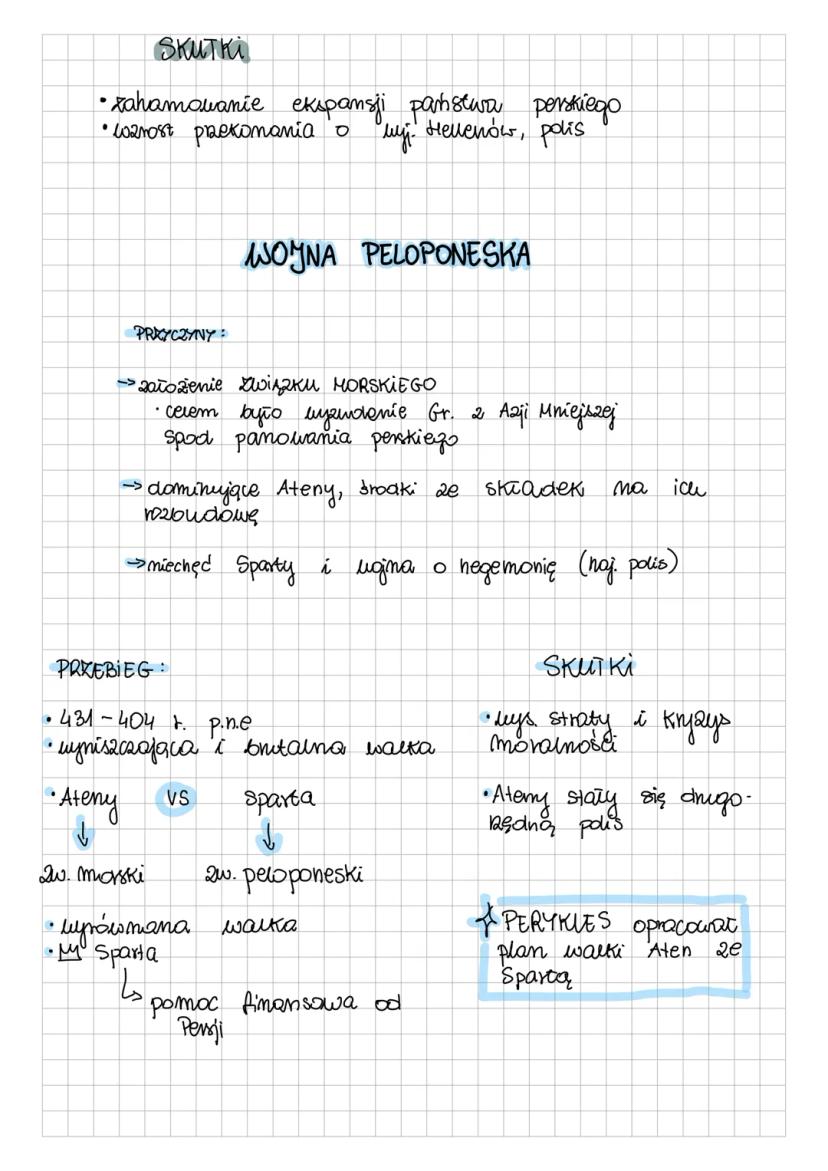 SKUTKI
• zahamowanie ekspansji państwa perskiego
• wzrost przekonania o wyj. Hellenów, polis
WOJNA PELOPONESKA
PRZYCZYNY:
→ założenie ZWIĄZKU MORSKIEGO
• celem było wyzwolenie Gr. z Azji Mniejszej
spod panowania perskiego
→ dominujące Ateny, środki ze składek na ich
rozbudowę
→ niechęć Sparty i wojna o hegemonię (naj. polis)
PRZEBIEG:
• 431-404 r. p.n.e
• wyniszczająca i brutalna walka
• Ateny VS Sparta
↓ ↓
Zw. morski Zw. peloponeski
• wyrównana walka
• Sparta
↳ pomoc finansowa od
Persji
SKUTKI
• wys. straty i kryzys
moralności
• Ateny stały się drugo-
rzędną polis
PERYKLES opracował
plan walki Aten ze
Spartą